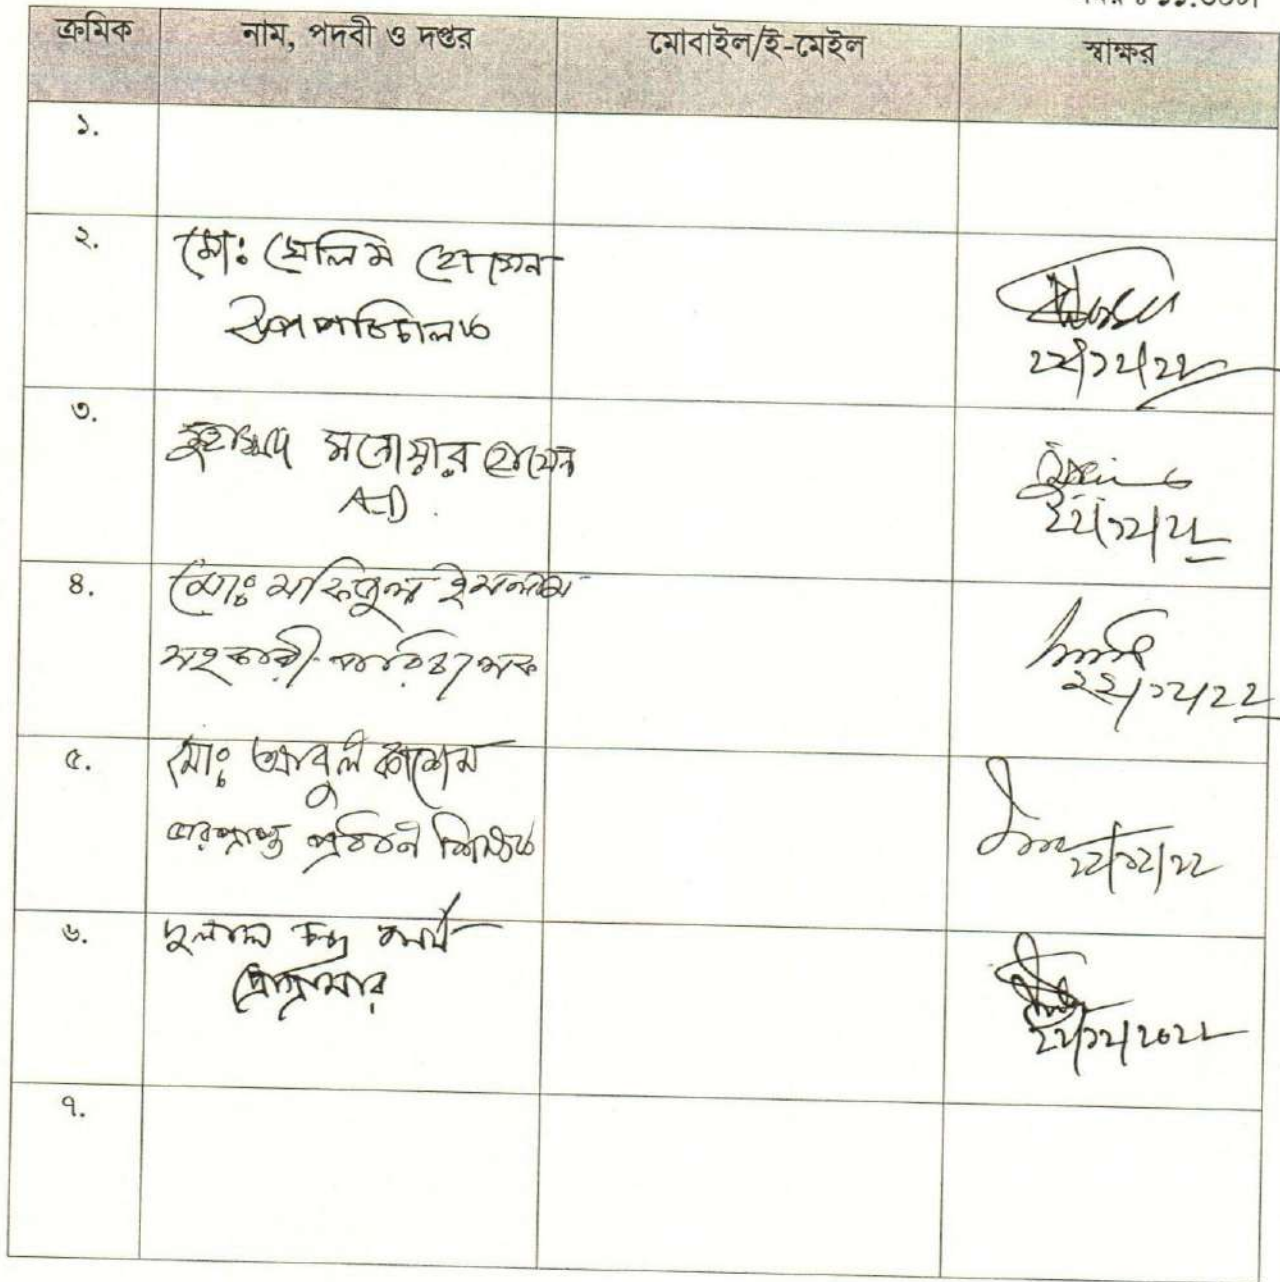 ক্রমিক নাম, পদবী ও দপ্তর মোবাইল/ই-মেইল স্বাক্ষর
১.
২. মোঃ সেলিম হোসেন
উপপরিচালক
২২/১২/২২
৩. মুহাম্মদ মনোয়ার হোসেন
A.D.
২২/১২/২২
৪. মোঃ মফিজুল ইসলাম
সহকারী পরিচালক
২২/১২/২২
৫. মোঃ আবুল কাশেম
ভারপ্রাপ্ত প্রধান শিক্ষক
২২/১২/২২
৬. দুলাল চন্দ্র
প্রোগ্রামার
২২/১২/২০২২
৭.